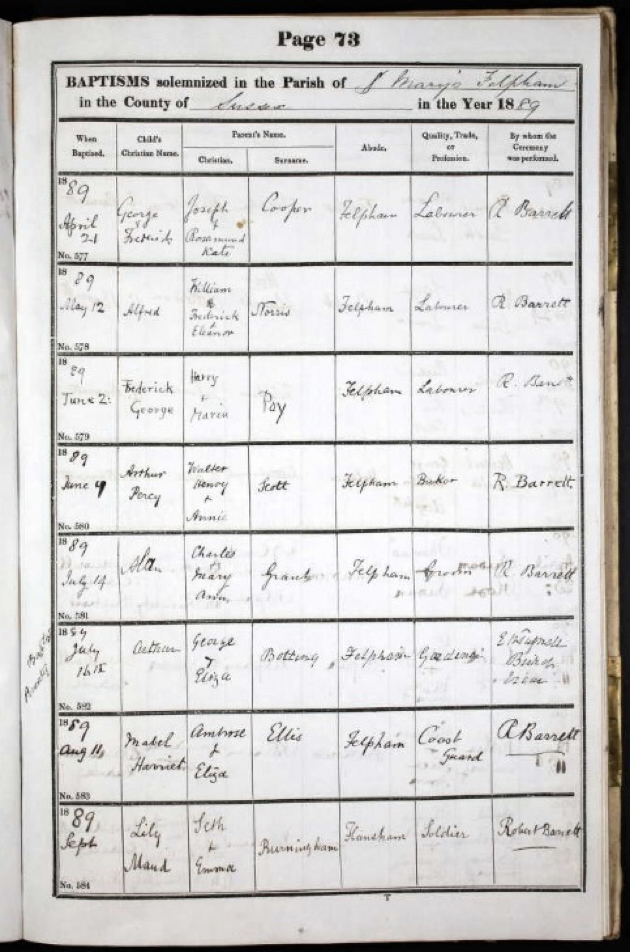 Page 73
BAPTISMS solemnized in the Parish of St Mary's Felpham
in the County of Sussex in the Year 1889
When Baptised. Child's Christian Name. Parent's Name. Abode. Quality, Trade, or Profession. By whom the Ceremony was performed.
Christian. Surname.
1889 April 21 No. 577 George & Frederick Joseph & Rosamund Kate Cooper Felpham Labourer R Barrett
1889 May 12 No. 578 Alfred William & Frederick & Eleanor Norris Felpham Labourer R. Barrett
1889 June 2 No. 579 Frederick George Harry + Maria Pay Felpham Labourer R. Barrett
1889 June 9 No. 580 Arthur Percy Walter Henry + Annie Scott Felpham R. Barrett
1889 July 14 No. 581 Alan Charles & Mary Ann Grant Felpham Grocer R Barrett
1889 July No. 582 Arthur George & Eliza Botting Felpham Gardener
1889 Aug 11 No. 583 Mabel Harriet Ambrose & Eliza Ellis Felpham Coast Guard R Barrett
1889 Sept No. 584 Lily Maud Seth + Emma Burningham Flansham Soldier Robert Barrett